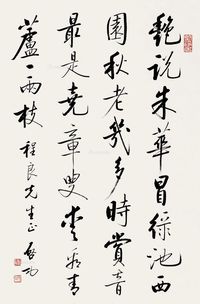 艷説朱華冒綠池西
園秋老幾多時賞音
最是堯章叟愛看青
蘆一兩枝 程良先生正 啟功